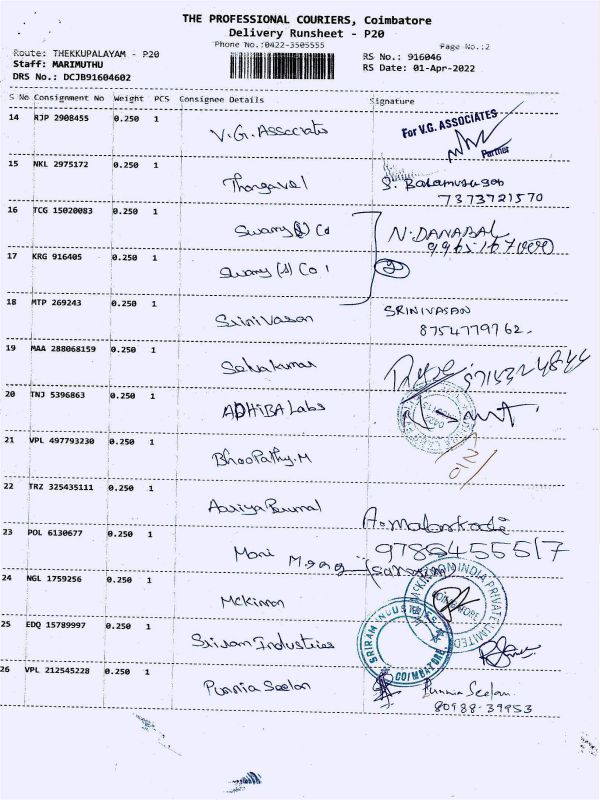 THE PROFESSIONAL COURIERS, Coimbatore
Delivery Runsheet - P20
Phone No.:0422-3505555
Page No.:2
Route: THEKKUPALAYAM - P20
RS No.: 916046
Staff: MARIMUTHU
RS Date: 01-Apr-2022
DRS No.: DCJB91604602
S No Consignment No Weight PCS Consignee Details Signature
14 RJP 2908455 0.250 1 V.G. Associats
For V.G. ASSOCIATES
Partner
15 NKL 2975172 0.250 1 Thangavel
7373721570
16 TCG 15020083 0.250 1 Swamy (&) Co
N. DANABAL
17 KRG 916405 0.250 1 Swamy (&) Co
2
18 MTP 269243 0.250 1 Srinivasan
SRINIVASAN
8754779762
19 MAA 288068159 0.250 1 Selvakumar
20 TNJ 5396863 0.250 1 ADHIBA Labs
21 VPL 497793230 0.250 1 Bhoopathy.M
22 TRZ 325435111 0.250 1
23 POL 6130677 0.250 1 Mani
24 NGL 1759256 0.250 1 Mckinnon
25 EDQ 15789997 0.250 1 Sriram Industries
SRIRAM INDUSTRIES
COIMBATORE
26 VPL 212545228 0.250 1 Punnia Seelan
Punnia Seelan
80988-39953